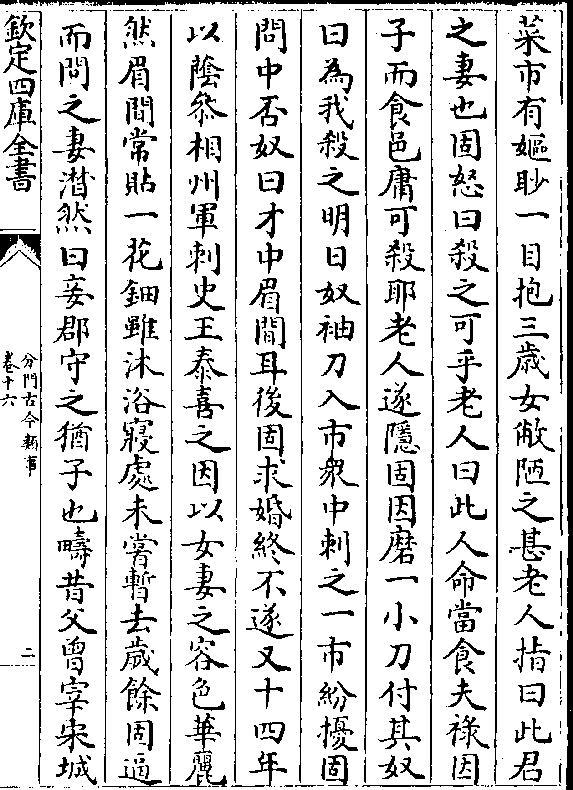 菜市有嫗眇一目抱三歳女敝陋之甚老人指曰此君
之妻也固怒曰殺之可乎老人曰此人命當食夫祿因
子而食邑庸可殺耶老人遂隱固因磨一小刀付其奴
曰為我殺之明日奴袖刀入市衆中刺之一市紛擾固
問中否奴曰才中眉間耳後固求婚終不遂又十四年
以蔭叅相州軍刺史王泰喜之因以女妻之容色華麗
然眉間常貼一花鈿雖沐浴寢處未嘗暫去歳餘固逼
而問之妻潸然曰妾郡守之猶子也疇昔父曾宰宋城
欽定四庫全書
分門古今類事
卷十六
二